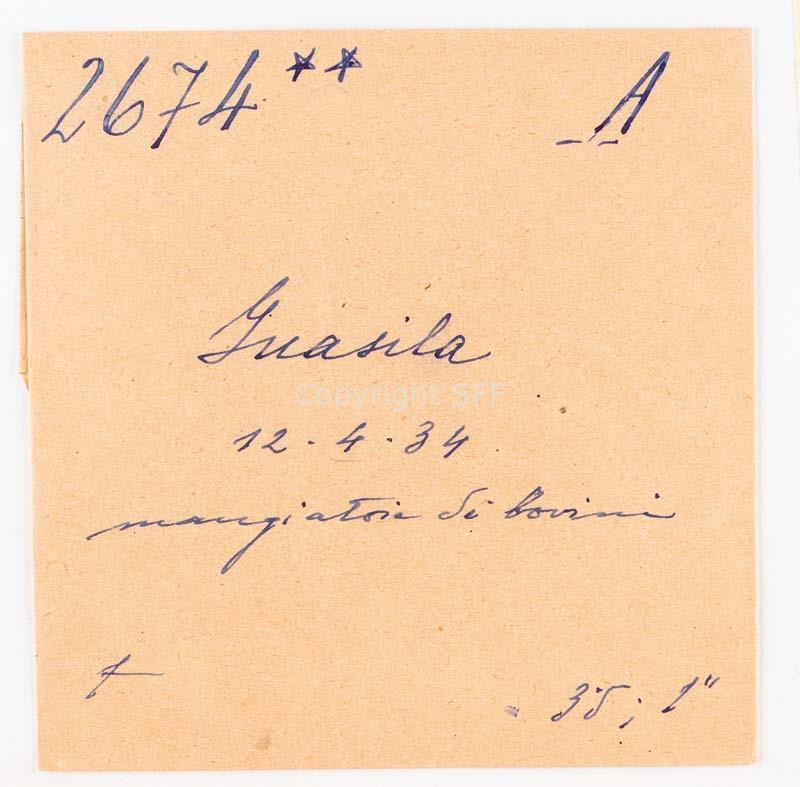 2674** A
Guasila
Copyright SFF
12.4.34
mangiatoie di bovini
35; 1"